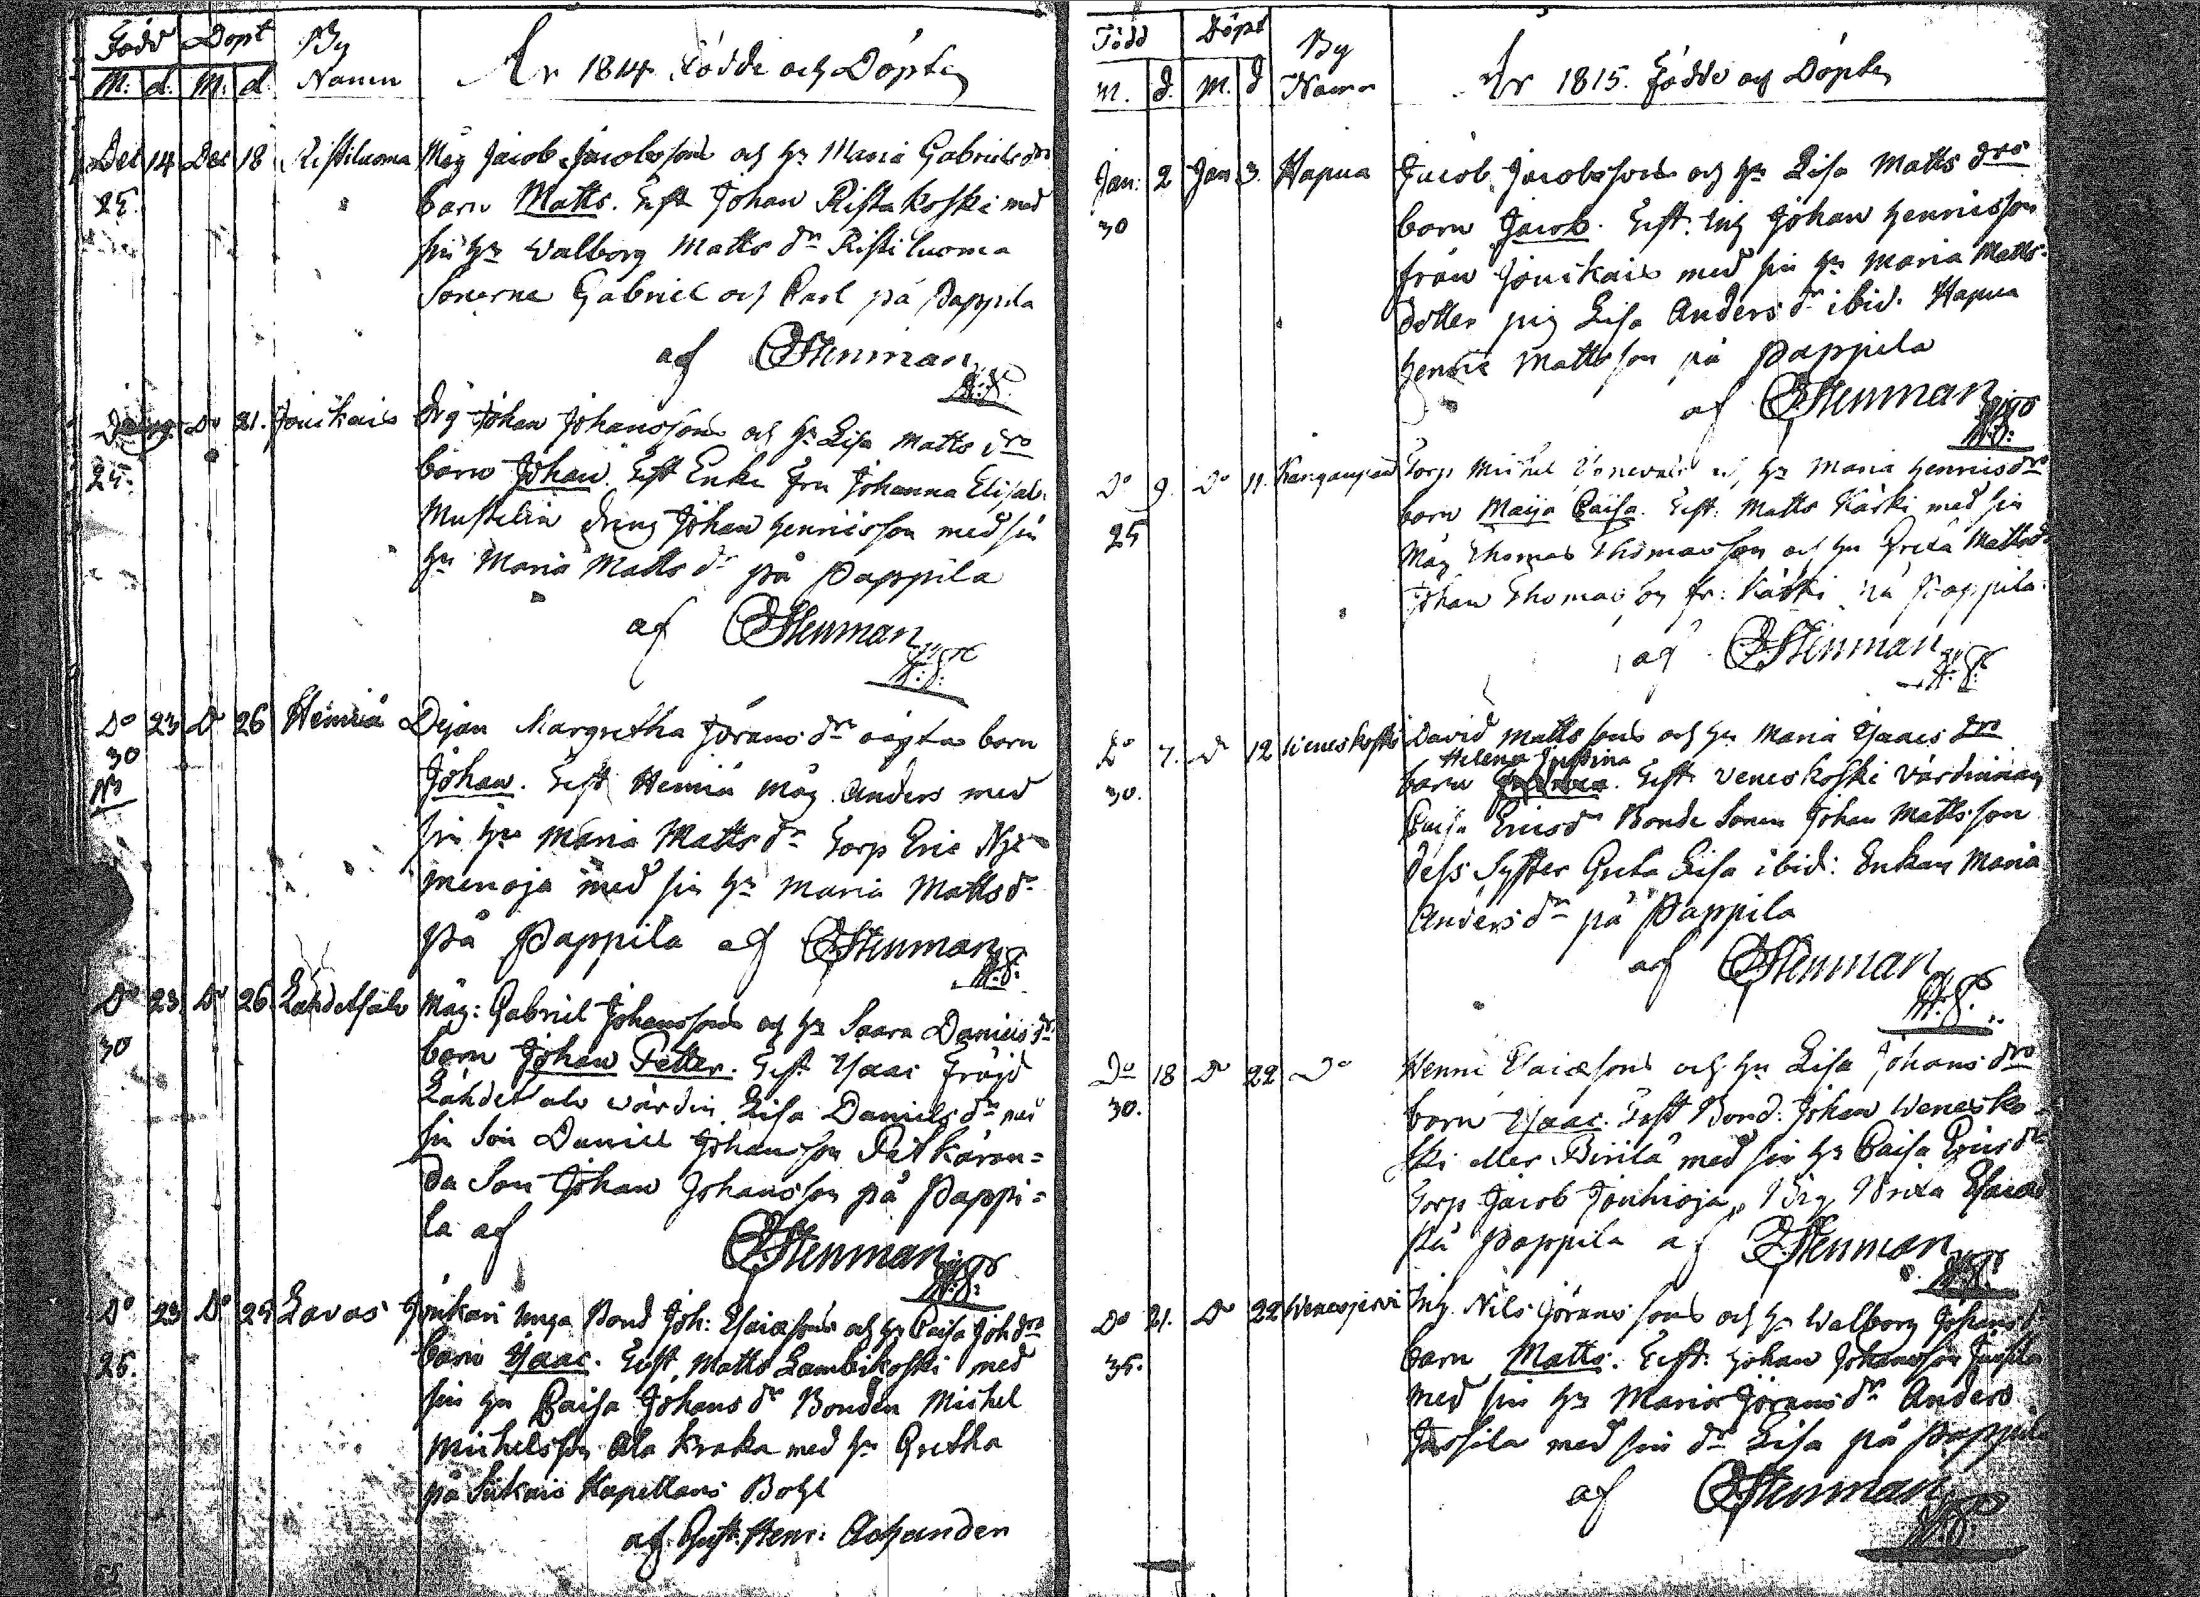 Född Döpt By
M: d: M: d. Namn År 1814 Födde och Döpte
Dec 14 Dec 18 Ristiluoma Måg Jacob Jacobssons och h:u Maria Gabrielsdrs
25. barn Matts. Test Johan Ristakoski med
sin h:u Walborg Matts dr Ristiluoma
Sönerne Gabriel och Carl på Pappila
af Stenman
D:o 21. Jonikais Drg Johan Johanssons och h:u Lisa Matts drs
25. barn Johan. Test Enke Fru Johanna Elisab.
Mustelin dreng Johan Henricsson med sin
h:u Maria Matts dr på Pappila
af Stenman
D:o 23 D:o 26 Dejan Margretha Jörans dr oägta barn
30 Johan. Test Måg Anders med
sin h:u Maria Matts dr Torp Eric
menoja med sin h:u Maria Matts dr
på Pappila af Stenman
D:o 23 D:o 26. Måg: Gabriel Johanssons och h:u Saara Daniels dr
30 barn Johan Petter. Test Isaac Fröjd
värdin Lisa Daniels dr med
sin Son Daniel Johansson Petkären=
da Son Johan Johansson på Pappi=
la af Stenman
D:o 23 D:o Lavas unga Bond Joh: Esaiæsons och h:u Caisa Joh drs
25. barn Isaac. Test. Matts Lambikoski med
sin h:u Caisa Johans dr Bonden Michel
Michelsson Ala Kraka med h:u Gretha
på Siikais Kapellans Bohl
af Gust. Henr:
Född Döpt By
M. d. M. d Namn År 1815. Födde och Döpte
Jan: 2 Jan 3. Hapua Jacob Jacobssons och h:u Lisa Matts drs
30 barn Jacob. Test. Johan Henricsson
från Jonikais med sin h:u Maria Matts-
dotter pig Lisa Anders dr ibid. Hapua
Henric Mattsson på Pappila
af Stenman
D:o 9. D:o 11. Torp Michel och h:u Maria Henricsdrs
25 barn Maija Caisa. Test: Matts Käski med sin
Måg Thomas Thomasson och h:u Greta Matts dr
Johan Thomasson fr: Käski på Pappila.
af Stenman
D:o 7. D:o 12 Weneskoski David Mattssons och h:u Maria Isaacs drs
Helena Justina
30. barn Test Veneskoski Värdinnan
Caisa Erics dr Bonde Sonen Johan Mattsson
dess Syster Greta Lisa ibid: Enkan Maria
Anders dr på Pappila
af Stenman
D:o 18 D:o 22 D:o Henric Esaiæsons och h:u Lisa Johans drs
30. barn Isaac. Test Bond: Johan Wenesko
ski eller Birilä med sin h:u Caisa Erics dr
Torp Jacob Jouhioja, Brita Esaiæ
på Pappila af Stenman
D:o 21. D:o 22 Wenesjervi Nils Jöranssons och h:u Walborg Johans dr
35. barn Matts. Test: Johan Johansson Jussila
med sin h:u Maria Jörans dr Anders
Jussila med sin dr Lisa på Pappila
af Stenman